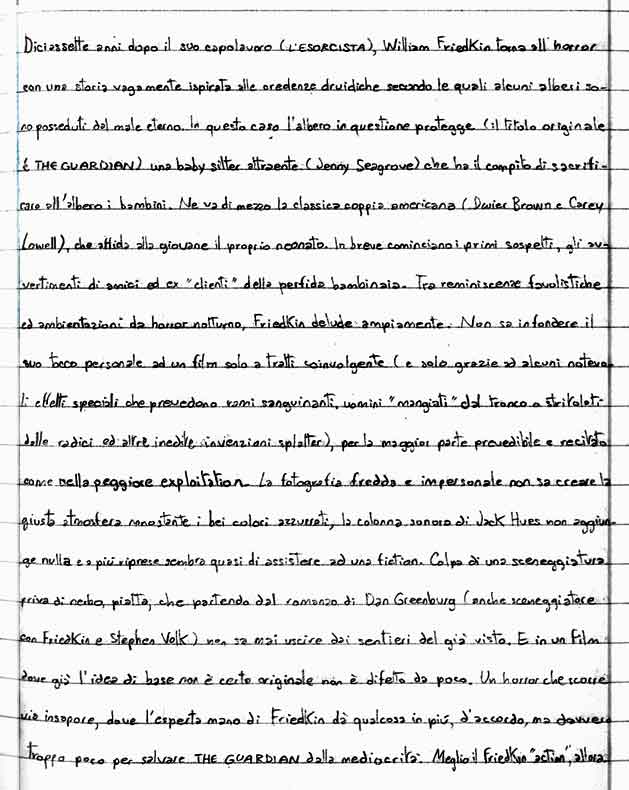 Diciassette anni dopo il suo capolavoro (L'ESORCISTA), William Friedkin torna all'horror
con una storia vagamente ispirata alle credenze druidiche secondo le quali alcuni alberi so-
no posseduti dal male eterno. In questo caso l'albero in questione protegge (il titolo originale
è THE GUARDIAN) una baby sitter attraente (Jenny Seagrove) che ha il compito di sacrifi-
care all'albero i bambini. Ne va di mezzo la classica coppia americana (Dwier Brown e Carey
Lowell), che affida alla giovane il proprio neonato. In breve cominciano i primi sospetti, gli av-
vertimenti di amici ed ex "clienti" della perfida bambinaia. Tra reminiscenze favolistiche
ed ambientazioni da horror notturno, Friedkin delude ampiamente. Non sa infondere il
suo tocco personale ad un film solo a tratti coinvolgente (e solo grazie ad alcuni notevo-
li effetti speciali che prevedono rami sanguinanti, uomini "mangiati" dal tronco o stritolati
dalle radici ed altre inedite invenzioni splatter), per la maggior parte prevedibile e recitato
come nella peggiore exploitation. La fotografia fredda e impersonale non sa creare la
giusta atmosfera nonostante i bei colori azzurrati, la colonna sonora di Jack Hues non aggiun-
ge nulla e a più riprese sembra quasi di assistere ad una fiction. Colpa di una sceneggiatura
priva di nerbo, piatta, che partendo dal romanzo di Dan Greenburg (anche sceneggiatore
con Friedkin e Stephen Volk) non sa mai uscire dai sentieri del già visto. E in un film
dove già l'idea di base non è certo originale non è difetto da poco. Un horror che scorre
via insapore, dove l'esperta mano di Friedkin dà qualcosa in più, d'accordo, ma davvero
troppo poco per salvare THE GUARDIAN dalla mediocrità. Meglio il Friedkin "action", allora.